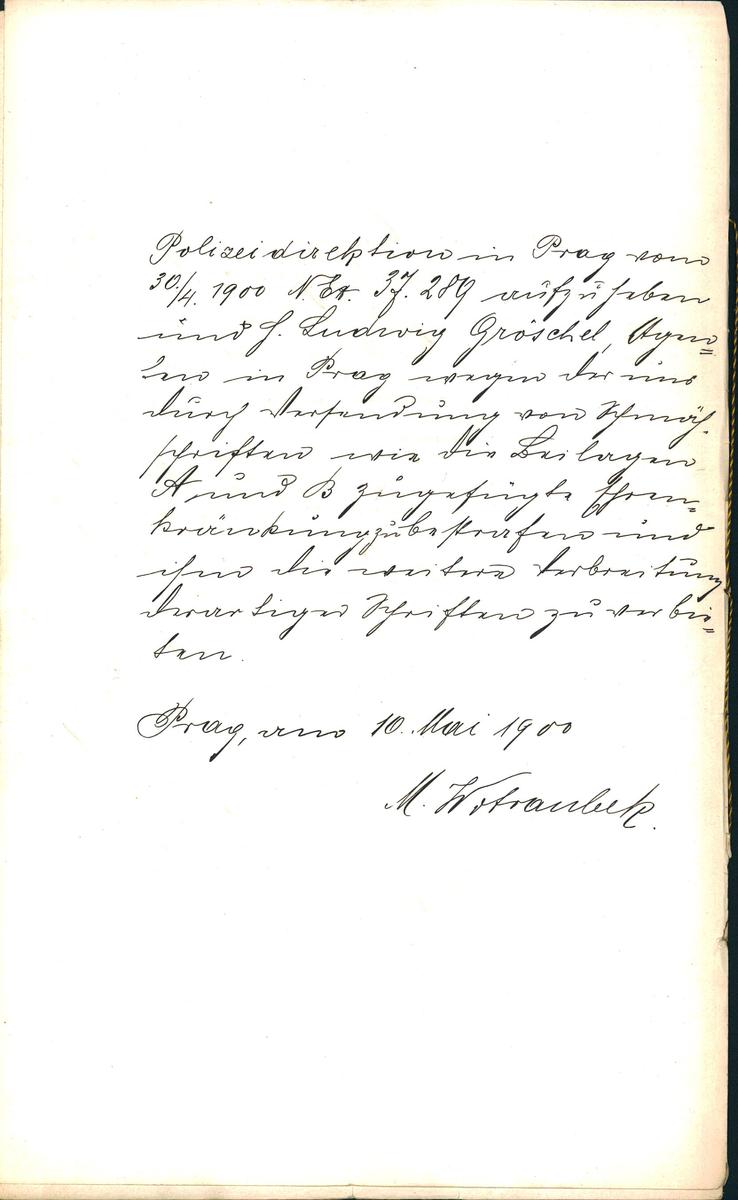 Polizeidirektion in Prag vom
30./4. 1900 N. Ex. 37.289 aufzuheben
und H. Ludwig Gröschel, Agen=
ten in Prag wegen der uns
durch Versendung von Schmäh-
schriften wie die Beilagen
A und B zugefügte Ehren-
kränkung zu bestrafen und
ihm die weitere Verbreitung
derartiger Schriften zu verbie=
ten.
Prag, am 10. Mai 1900
M. Wotraubek.